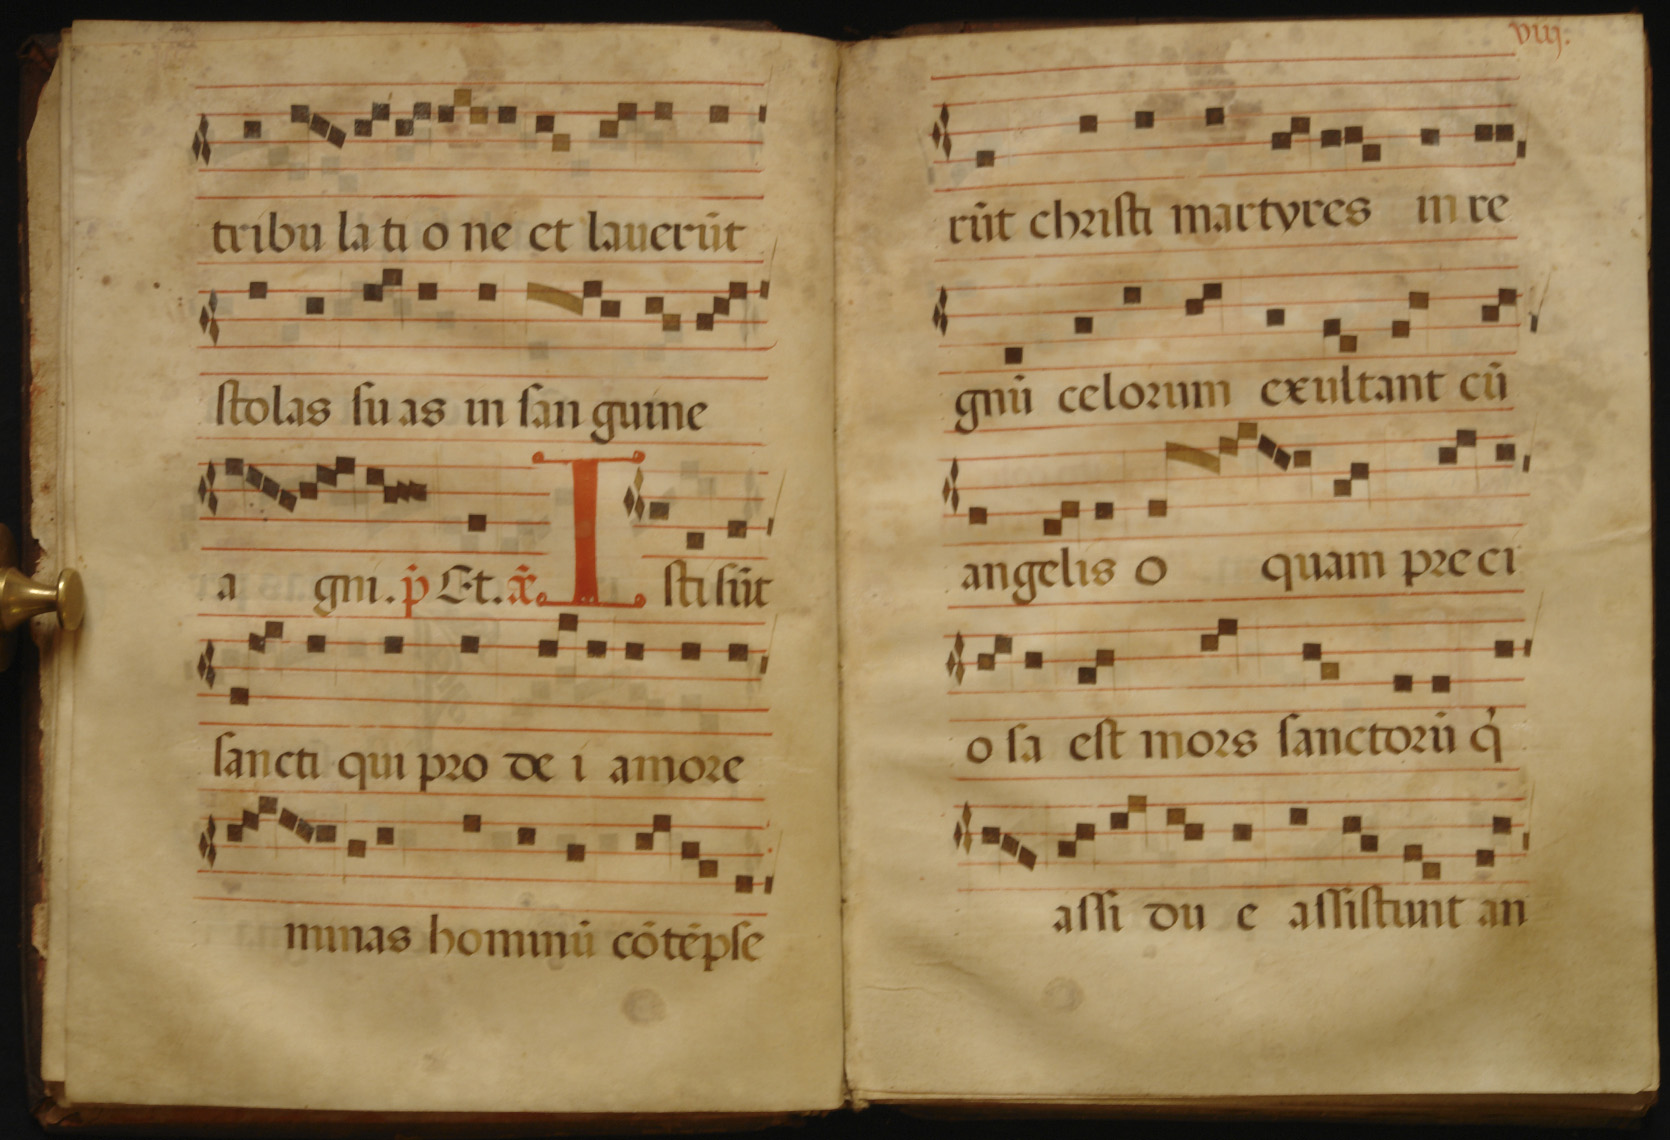 tribu la ti o ne et lauerūt
stolas su as in san guine
a gni. p̄ Et. ā. I sti sūt
sancti qui pro de i amore
minas hominū cōtēpse
viij:
rūt christi martyres in re
gnū celorum exultant cū
angelis o quam pre ci
o sa est mors sanctorū q̇
assi du e assistunt an